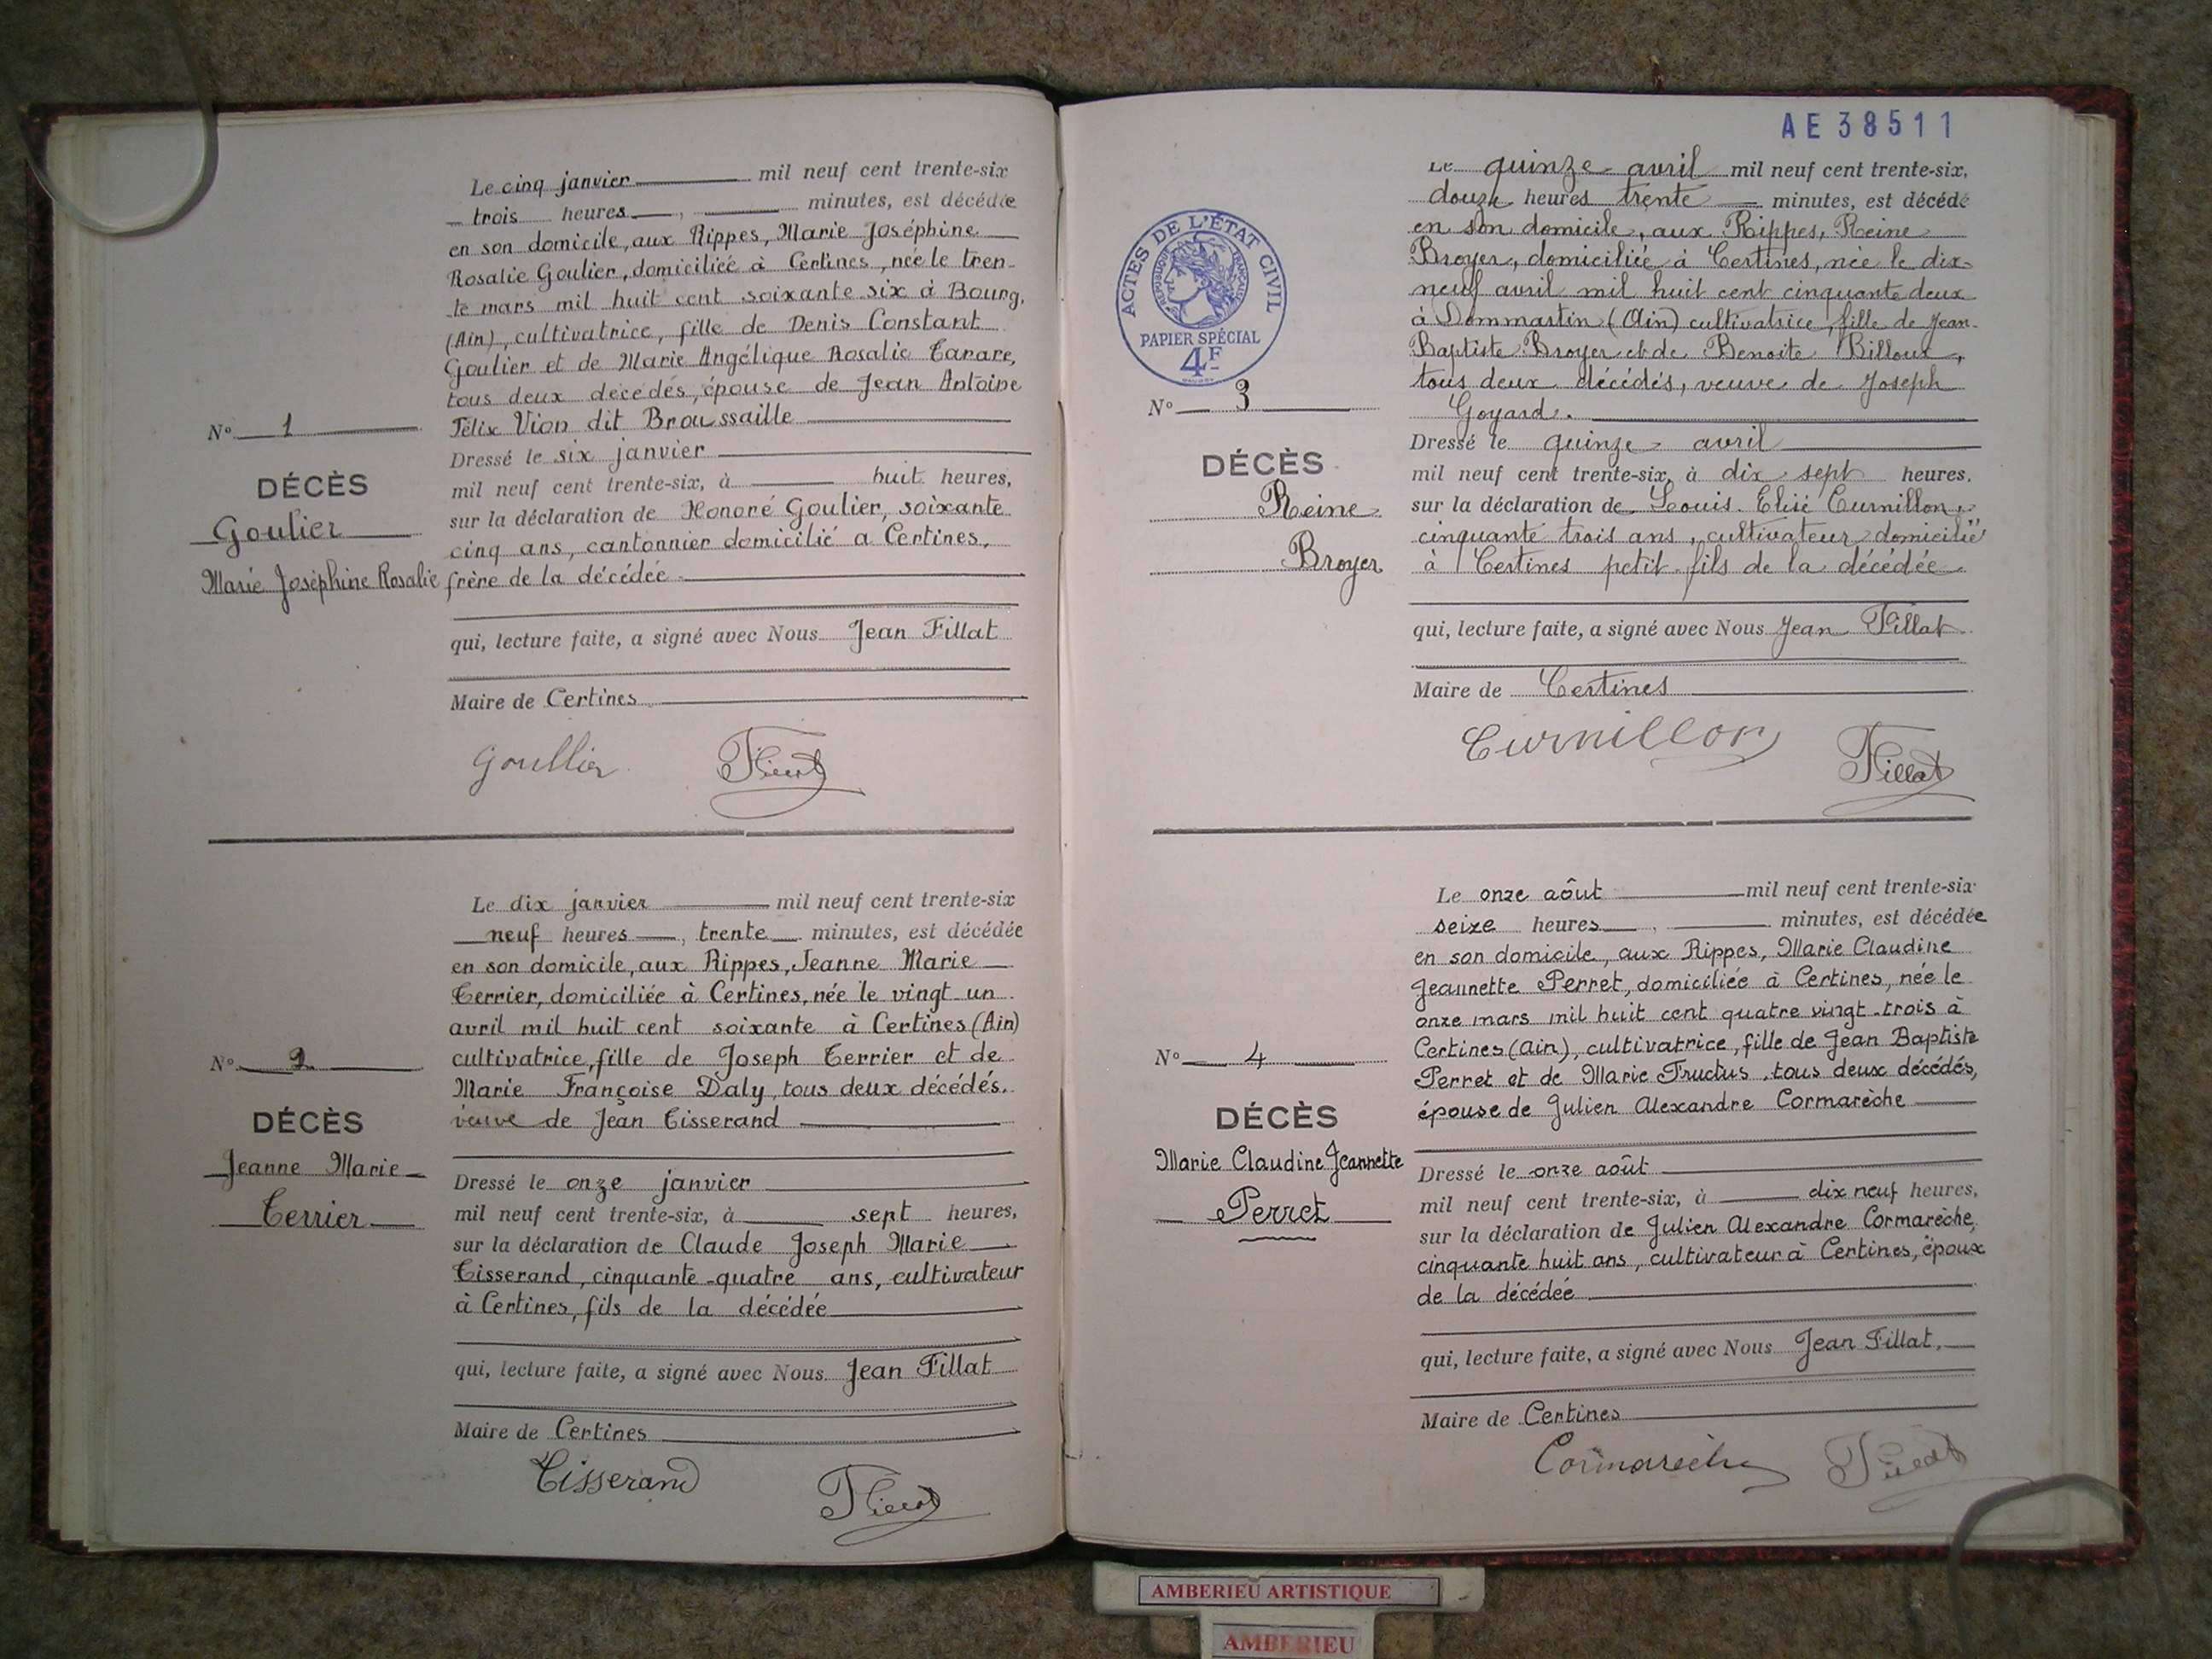 Le cinq janvier mil neuf cent trente-six
trois heures , minutes, est décédée
en son domicile, aux Rippes, Marie Joséphine
Rosalie Goulier, domiciliée à Certines, née le tren-
te mars mil huit cent soixante six à Bourg,
(Ain), cultivatrice, fille de Denis Constant
Goulier et de Marie Angélique Rosalie Tarare,
tous deux décédés, épouse de Jean Antoine
Félix Vion dit Broussaille
Dressé le six janvier
mil neuf cent trente-six, à huit heures,
sur la déclaration de Honoré Goulier, soixante
cinq ans, cantonnier domicilié a Certines,
frère de la décédée
qui, lecture faite, a signé avec Nous Jean Fillat
Maire de Certines
Goullier Fillat
N° 1
DÉCÈS
Goulier
Marie Joséphine Rosalie
Le dix janvier mil neuf cent trente-six
neuf heures , trente minutes, est décédée
en son domicile, aux Rippes, Jeanne Marie
Terrier, domiciliée à Certines, née le vingt un
avril mil huit cent soixante à Certines (Ain)
cultivatrice, fille de Joseph Terrier et de
Marie Françoise Daly, tous deux décédés.
veuve de Jean Tisserand
Dressé le onze janvier
mil neuf cent trente-six, à sept heures,
sur la déclaration de Claude Joseph Marie
Tisserand, cinquante-quatre ans, cultivateur
à Certines, fils de la décédée
qui, lecture faite, a signé avec Nous Jean Fillat
Maire de Certines
Tisserand Fillat
N° 2
DÉCÈS
Jeanne Marie
Terrier
AE 38511
Le quinze avril mil neuf cent trente-six,
douze heures trente minutes, est décédé
en son domicile, aux Rippes, Reine
Broyer, domiciliée à Certines, née le dix-
neuf avril mil huit cent cinquante deux
à Dommartin (Ain) cultivatrice, fille de Jean-
Baptiste Broyer et de Benoite Billoux,
tous deux décédés, veuve de Joseph
Goyard.
Dressé le quinze avril
mil neuf cent trente-six, à dix sept heures,
sur la déclaration de Louis Elisé Curnillon,
cinquante trois ans, cultivateur domicilié
à Certines petit-fils de la décédée
qui, lecture faite, a signé avec Nous Jean Fillat
Maire de Certines
Curnillon Fillat
ACTES DE L'ÉTAT CIVIL
RÉPUBLIQUE FRANÇAISE
PAPIER SPÉCIAL
4F
N° 3
DÉCÈS
Reine
Broyer
Le onze aôut mil neuf cent trente-six
seize heures , minutes, est décédée
en son domicile, aux Rippes, Marie Claudine
Jeannette Perret, domiciliée à Certines, née le
onze mars mil huit cent quatre vingt-trois à
Certines (Ain), cultivatrice, fille de Jean Baptiste
Perret et de Marie Fructus, tous deux décédés,
épouse de Julien Alexandre Cormarèche
Dressé le onze août
mil neuf cent trente-six, à dix neuf heures,
sur la déclaration de Julien Alexandre Cormarèche,
cinquante huit ans, cultivateur à Certines, époux
de la décédée
qui, lecture faite, a signé avec Nous Jean Fillat,
Maire de Certines
Cormarèche Fillat
N° 4
DÉCÈS
Marie Claudine Jeannette
Perret
AMBERIEU ARTISTIQUE
AMBERIEU